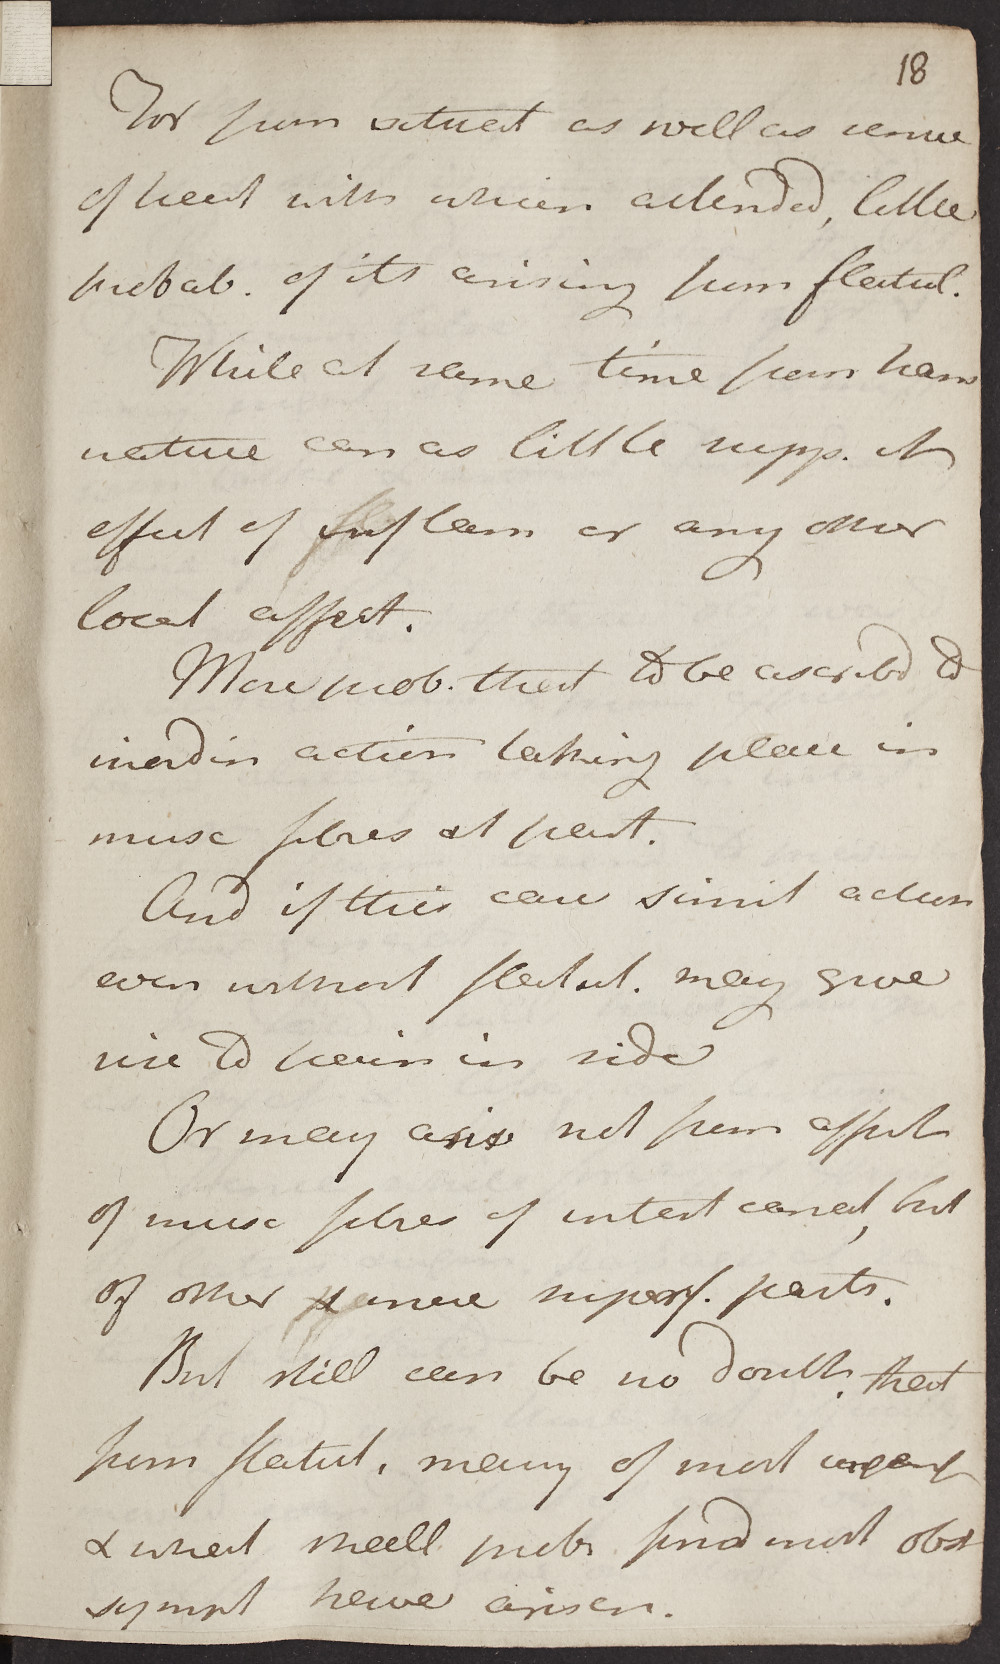 18
For from situat as well as sense
of heat with which attended, little
probab. of its arising from flatul.
While at same time from trans
nature can as little supp. it
effect of Inflam or any other
local affect.
More prob. that to be ascribd to
inordin action taking place in
musc fibres at part.
And if this case simil action
even without flatul. may give
rise to pain in side
Or may arise not from affect
of musc fibres of intest canal, but
of other more superf. parts.
But still can be no doubt, that
from flatul. many of most urgent
& what shall prob find most obst
sympt have arisen.